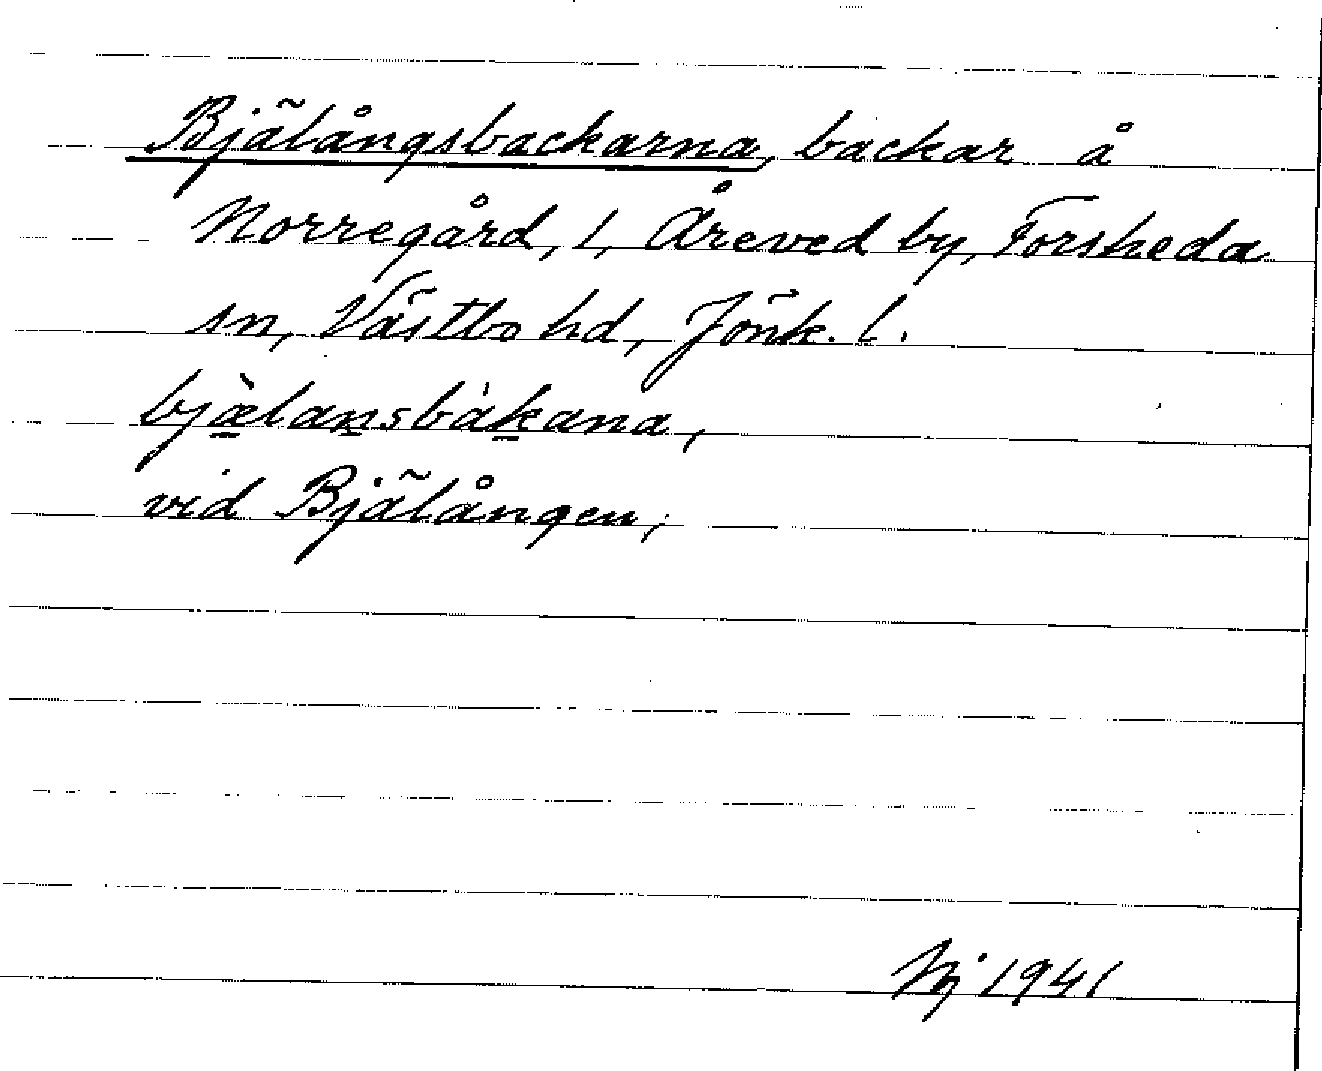 Bjälångsbackarna, backar å
Norregård, 1, Åreved by, Forsheda
sn, Västbo hd, Jönk. l.
bjæ̀lansbàkana,
vid Bjälången;
1941